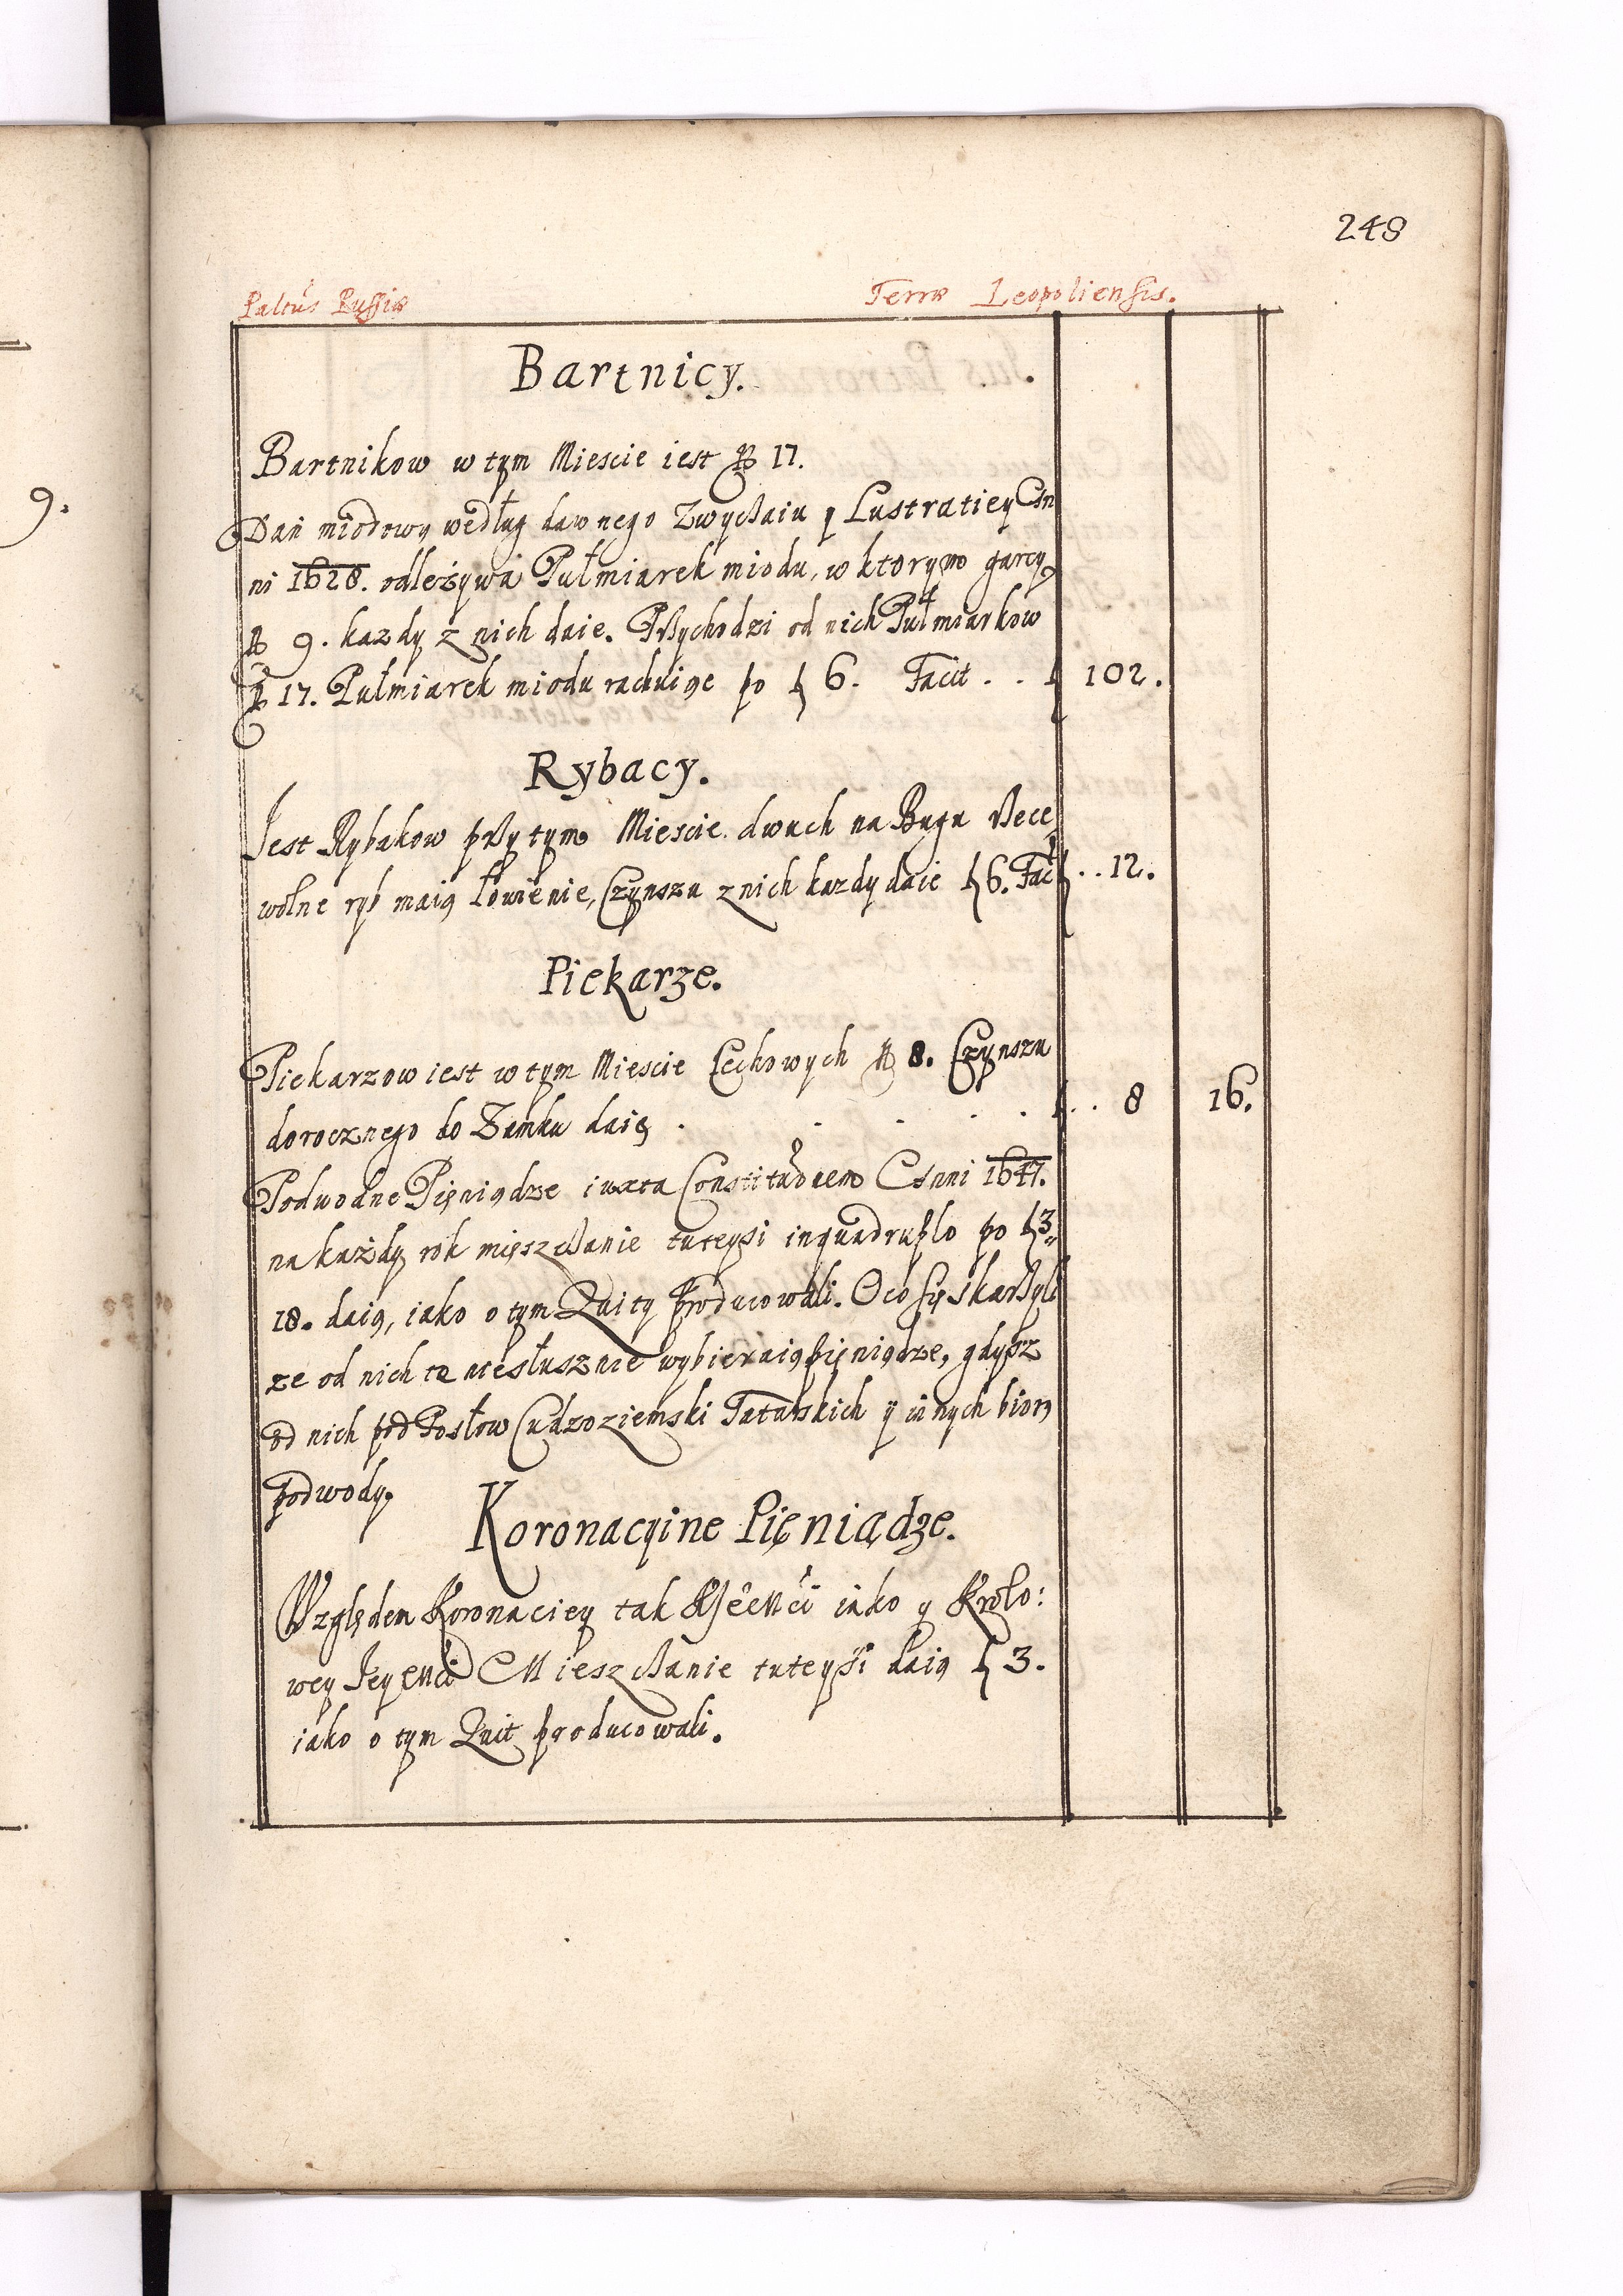 248
Paltûs Russiæ Terræ Leopoliensis.
Bartnicy.
Bartnikow w tym Miescie iest No 17.
Dań miodowy według dawnego Zwyczaiu y Lustratiey An
ni 1628. odleżywa Pułmiarek miodu, w ktorym garcy
No 9. kazdy z nich daie. Przychodzi od nich Pułmiarkow
No 17. Pułmiarek miodu rachuiąc po f 6. Facit . . f 102.
Rybacy.
Jest Rybakow przy tym Miescie dwuch na Bugu rzece
wolne ryb maią łowienie, Czynszu z nich kazdy daie f 6. Facit f . . 12.
Piekarze.
Piekarzow iest w tym Miescie Cechowych No 8. Czynszu
dorocznego do Zamku daią . . . . . f . . 8 16.
Podwodne Pięniądze iuxta Constitutionem Anni 1647.
na każdy rok mięszczanie tuteysi in quadruplo po f 3„
18. daią, iako o tym Quity producowali. O co się skarżyli
ze od nich te niesłusznie wybieraią pięniądze, gdysz
od nich pod Posłow Cudzoziemski Tatarskich ÿ innych biorą
podwody.
Koronacyine Pięniądze.
Względem Koronaciey tak KJéMći iako y Krolo:
wey JeyMći Mieszczanie tuteysi daią f 3.
iako o tym Quit producowali.
9.